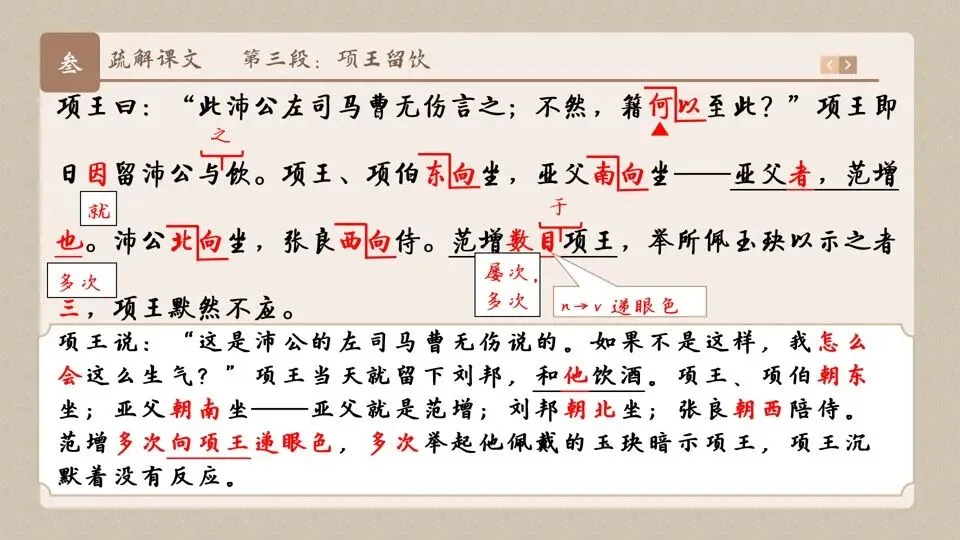 叁 疏解课文 第三段：项王留饮
项王曰：“此沛公左司马曹无伤言之；不然，籍何以至此？”项王即
之
日因留沛公与饮。项王、项伯东向坐，亚父南向坐——亚父者，范增
就
于
也。沛公北向坐，张良西向侍。范增数目项王，举所佩玉玦以示之者
多次
屡次，
多次
n→v 递眼色
三，项王默然不应。
项王说：“这是沛公的左司马曹无伤说的。如果不是这样，我怎么
会这么生气？”项王当天就留下刘邦，和他饮酒。项王、项伯朝东
坐；亚父朝南坐——亚父就是范增；刘邦朝北坐；张良朝西陪侍。
范增多次向项王递眼色，多次举起他佩戴的玉玦暗示项王，项王沉
默着没有反应。